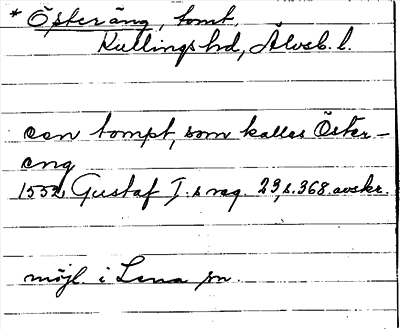 * Österäng, tomt,
Kullings hd, Älvsb. l.
een tompt, som kallas Öster-
eng
1552 Gustaf I. s reg. 23, s. 368. avskr.
möjl. i Lena sn.